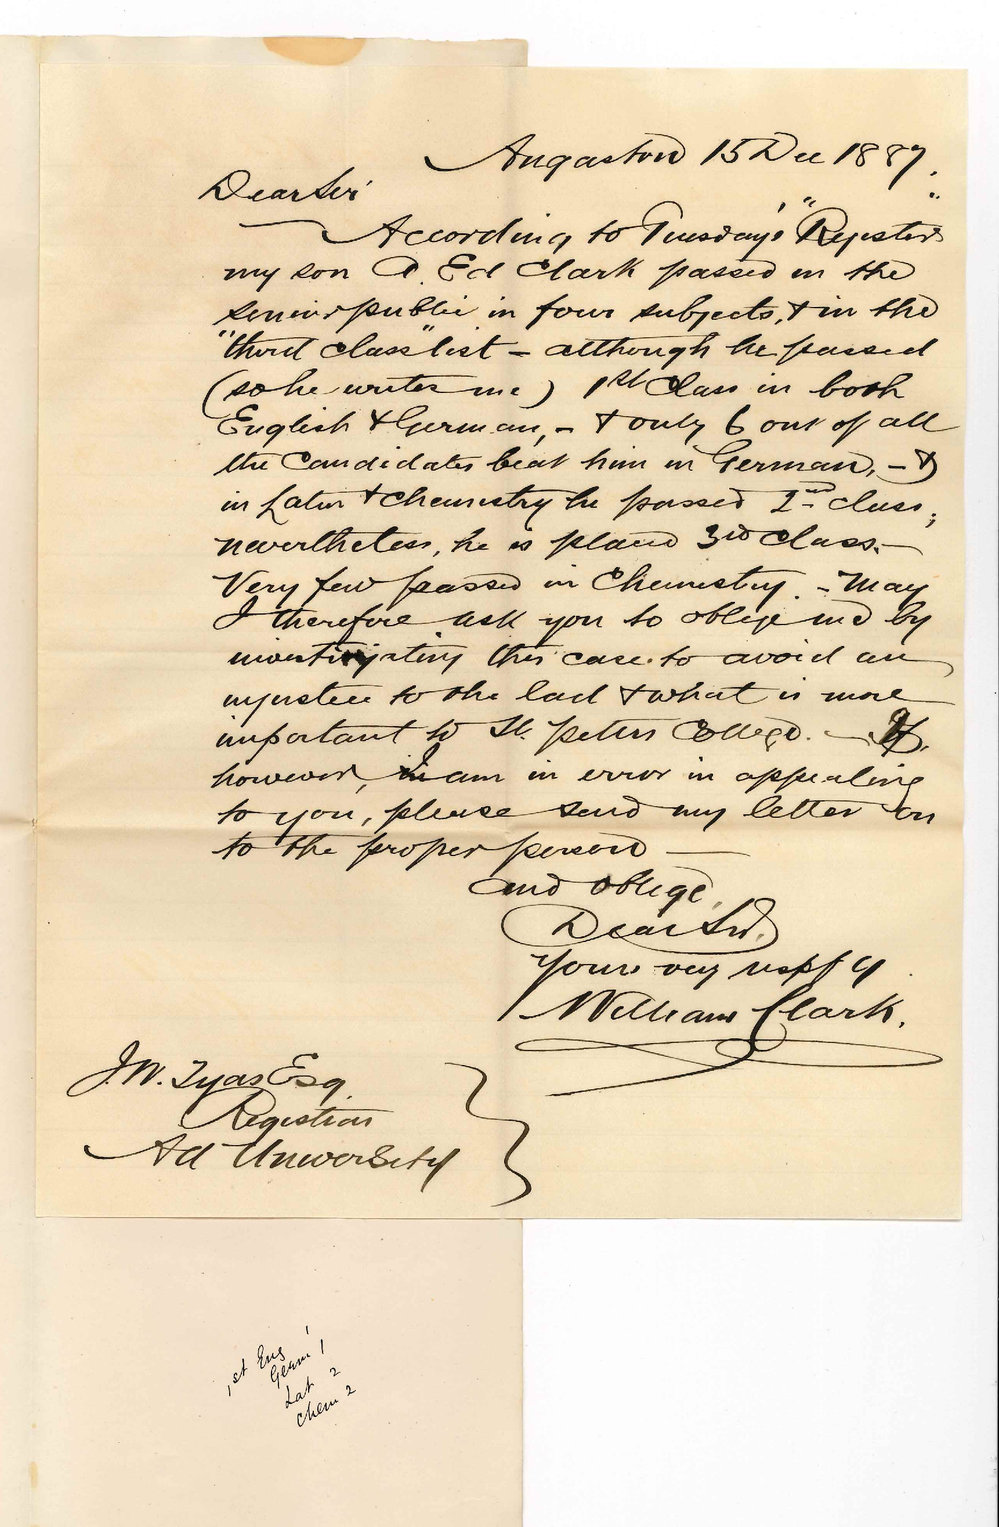 Angaston 15 Dec 1887.
Dear Sir
According to Tuesday's "Register"
my son Ed Clark passed in the
senior public in four subjects, & in the
"third class" list - although he passed
(so he writes me) 1st Class in both
English & German, - & only 6 out of all
the Candidates beat him in German, - &
in Latin & Chemistry he passed 2nd class;
nevertheless, he is placed 3rd Class.-
Very few passed in Chemistry. - May
I therefore ask you to oblige me by
investigating this case to avoid an
injustice to the lad & what is more
important to St. Peters College. - If,
however, I am in error in appealing
to you, please send my letter on
to the proper person —
and oblige,
Dear Sir.
Yours very respfy
William Clark.
J.W. Tyas Esq.
Registrar
Ad University
1st Eng 1
Germ 1
Lat 2
Chem 2